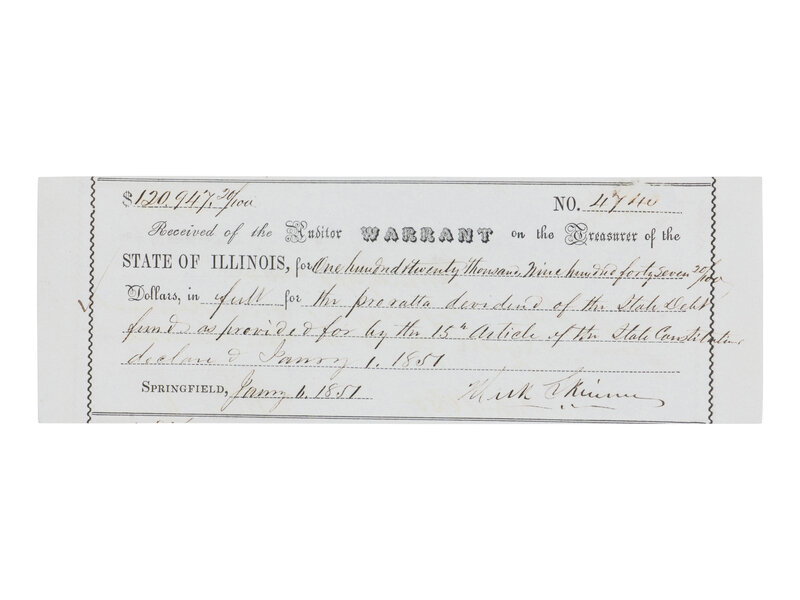 $120,947.20/100 NO. 4740
Received of the Auditor WARRANT on the Treasurer of the
STATE OF ILLINOIS, for One hundred twenty thousand Nine hundred forty seven 20/100
Dollars, in full for the proratta devidend of the State Debt
fund as provided for by the 15th Article of the State Constitution
declared Janry 1. 1851
SPRINGFIELD, Janry 6. 1851 Mark Skinner